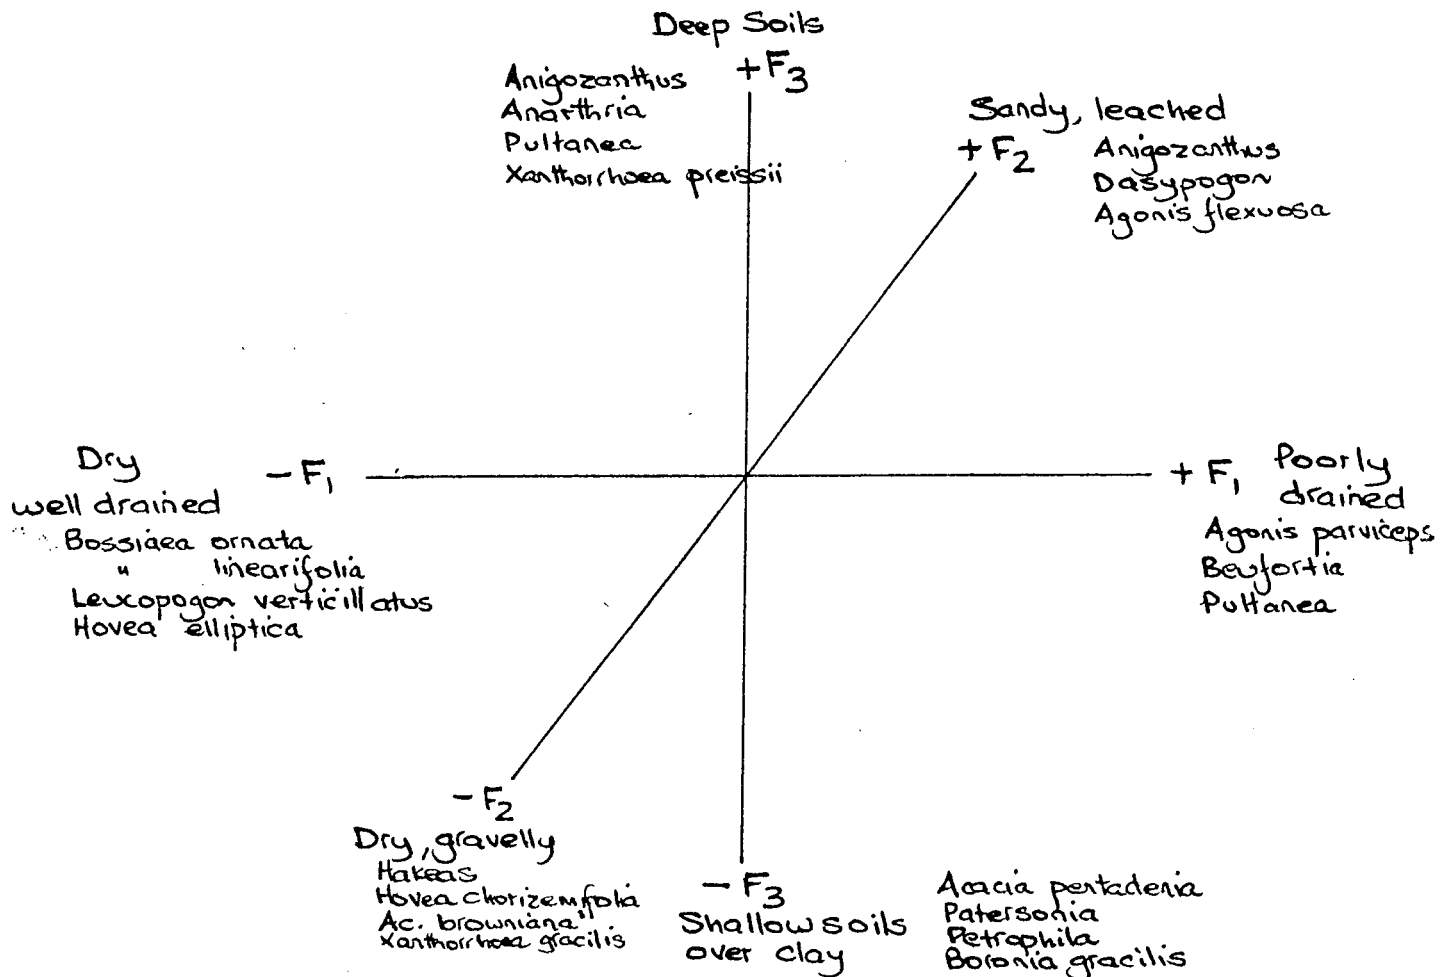 Deep Soils
+F3
Anigozanthus
Anarthria
Pultanea
Xanthorrhoea preissii
Sandy, leached
+F2
Anigozanthus
Dasypogon
Agonis flexuosa
Dry
well drained
-F1
Bossiaea ornata
" linearifolia
Leucopogon verticillatus
Hovea elliptica
+F1
Poorly
drained
Agonis parviceps
Beufortia
Pultanea
-F2
Dry, gravelly
Hakeas
Hovea chorizemifolia
Ac. browniana"
Xanthorrhoea gracilis
-F3
Shallow soils
over clay
Acacia pentadenia
Patersonia
Petrophila
Boronia gracilis